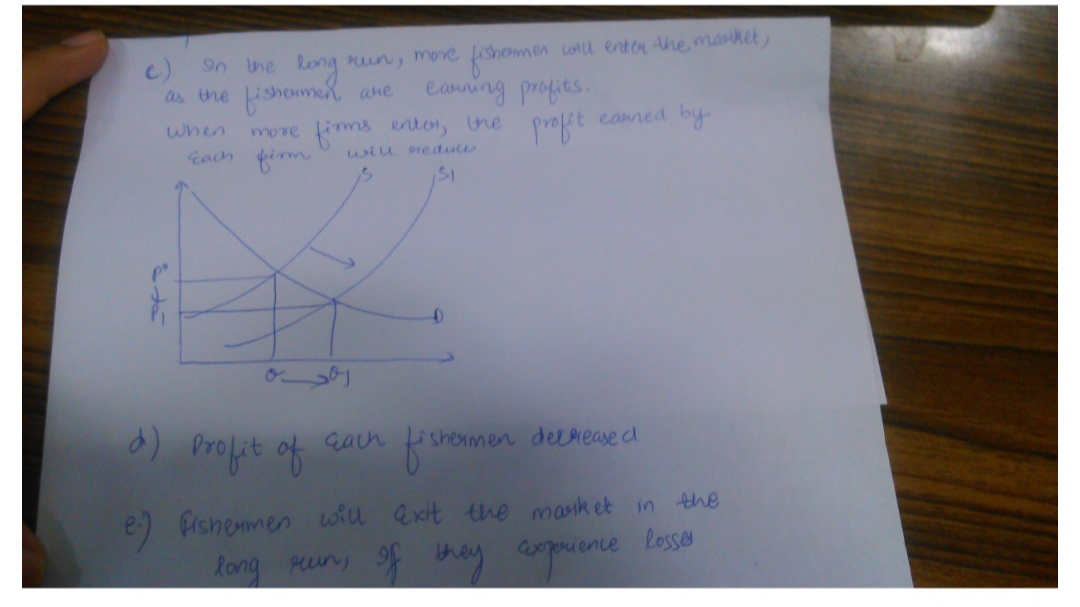 c) In the long run, more fishermen will enter the market,
as the fishermen are earning profits.
When more firms enter, the profit earned by
Each firm will reduce
S
S1
P
P1
D
Q
Q1
d) Profit of each fishermen decreased
e.) Fishermen will exit the market in the
long run, If they experience losses